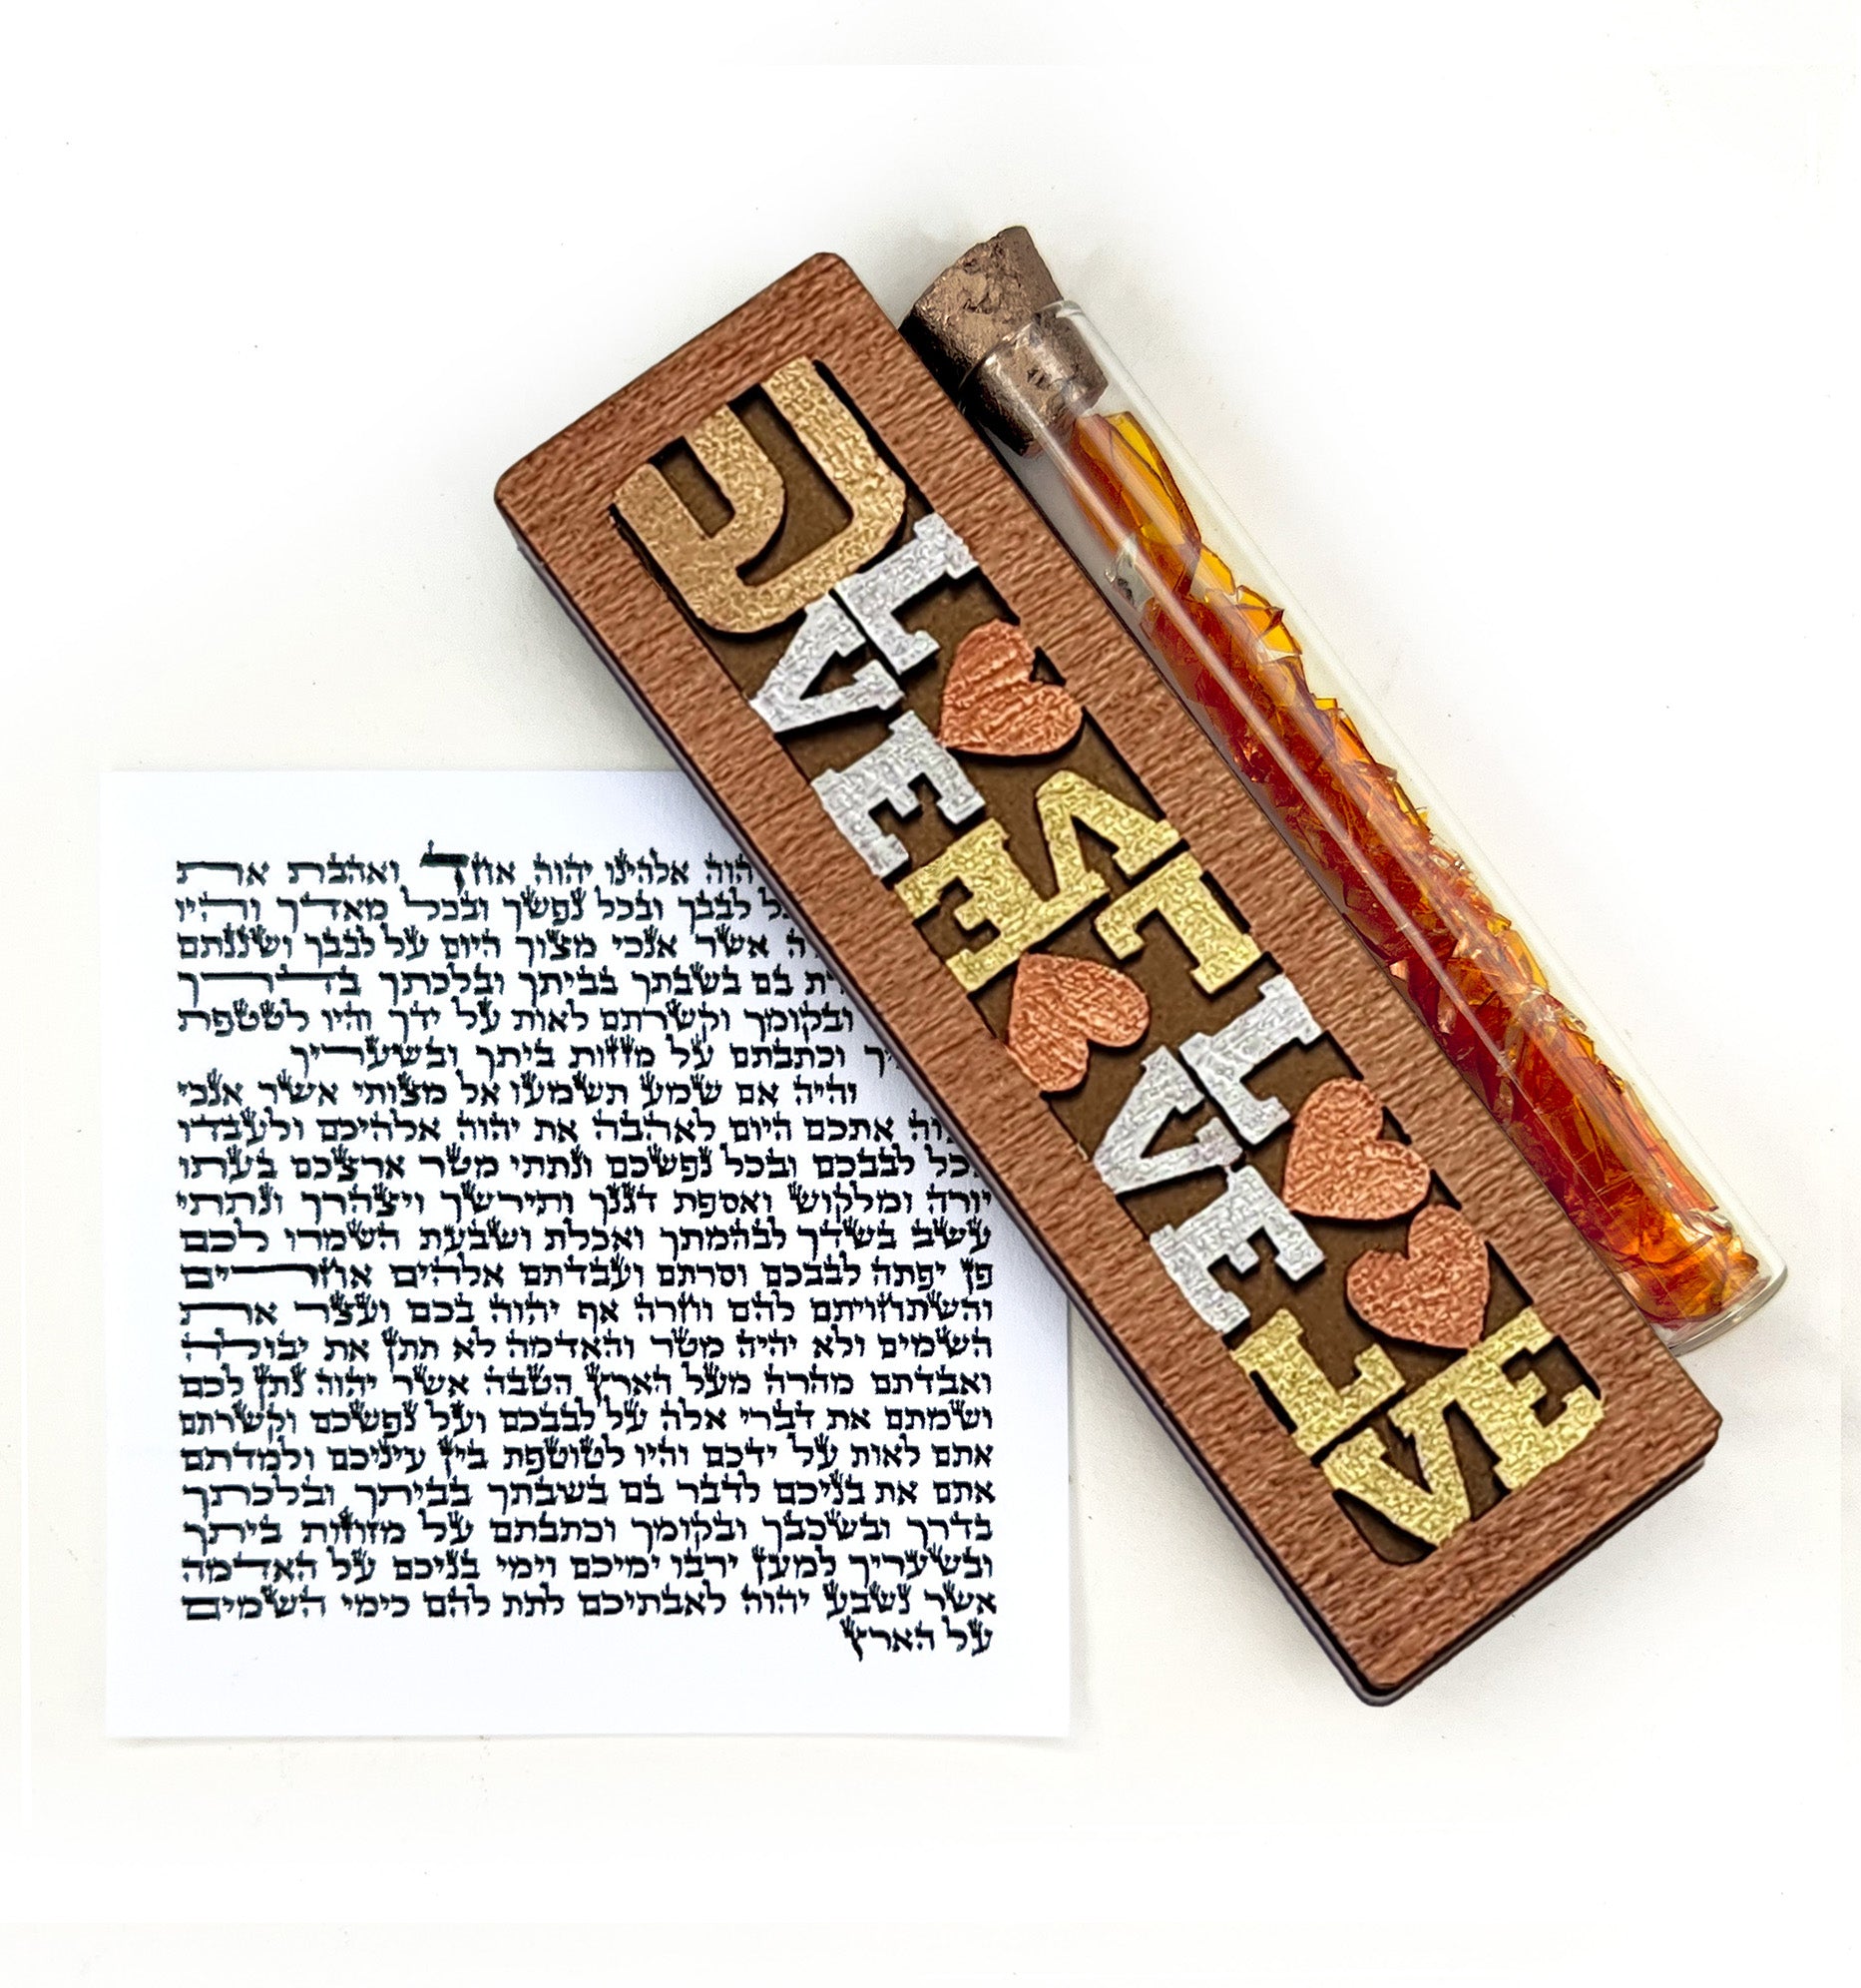 ש
L
VE
L
VE
L
VE
L
VE
הוה אלהינו יהוה אחד ואהבת את
לבבך ובכל נפשך ובכל מאדך והיו
אשר אנכי מצוך היום על לבבך ושננתם
בם בשבתך בביתך ובלכתך בדרך
ובקומך וקשרתם לאות על ידך היו לטטפת
וכתבתם על מזזות ביתך ובשעריך
והיה אם שמע תשמעו אל מצותי אשר אנכי
אתכם היום לאהבה את יהוה אלהיכם ולעבדו
לבבכם ובכל נפשכם ונתתי מטר ארצכם בעתו
יורה ומלקוש ואספת דגנך ותירשך ויצהרך ונתתי
עשב בשדך לבהמתך ואכלת ושבעת השמרו לכם
פן יפתה לבבכם וסרתם ועבדתם אלהים אחרים
והשתחויתם להם וחרה אף יהוה בכם ועצר את
השמים ולא יהיה מטר והאדמה לא תתן את יבולה
ואבדתם מהרה מעל הארץ הטבה אשר יהוה נתן לכם
ושמתם את דברי אלה על לבבכם ועל נפשכם וקשרתם
אתם לאות על ידכם והיו לטוטפת בין עיניכם ולמדתם
אתם את בניכם לדבר בם בשבתך בביתך ובלכתך
בדרך ובשכבך ובקומך וכתבתם על מזוזות ביתך
ובשעריך למען ירבו ימיכם וימי בניכם על האדמה
אשר נשבע יהוה לאבתיכם לתת להם כימי השמים
על הארץ